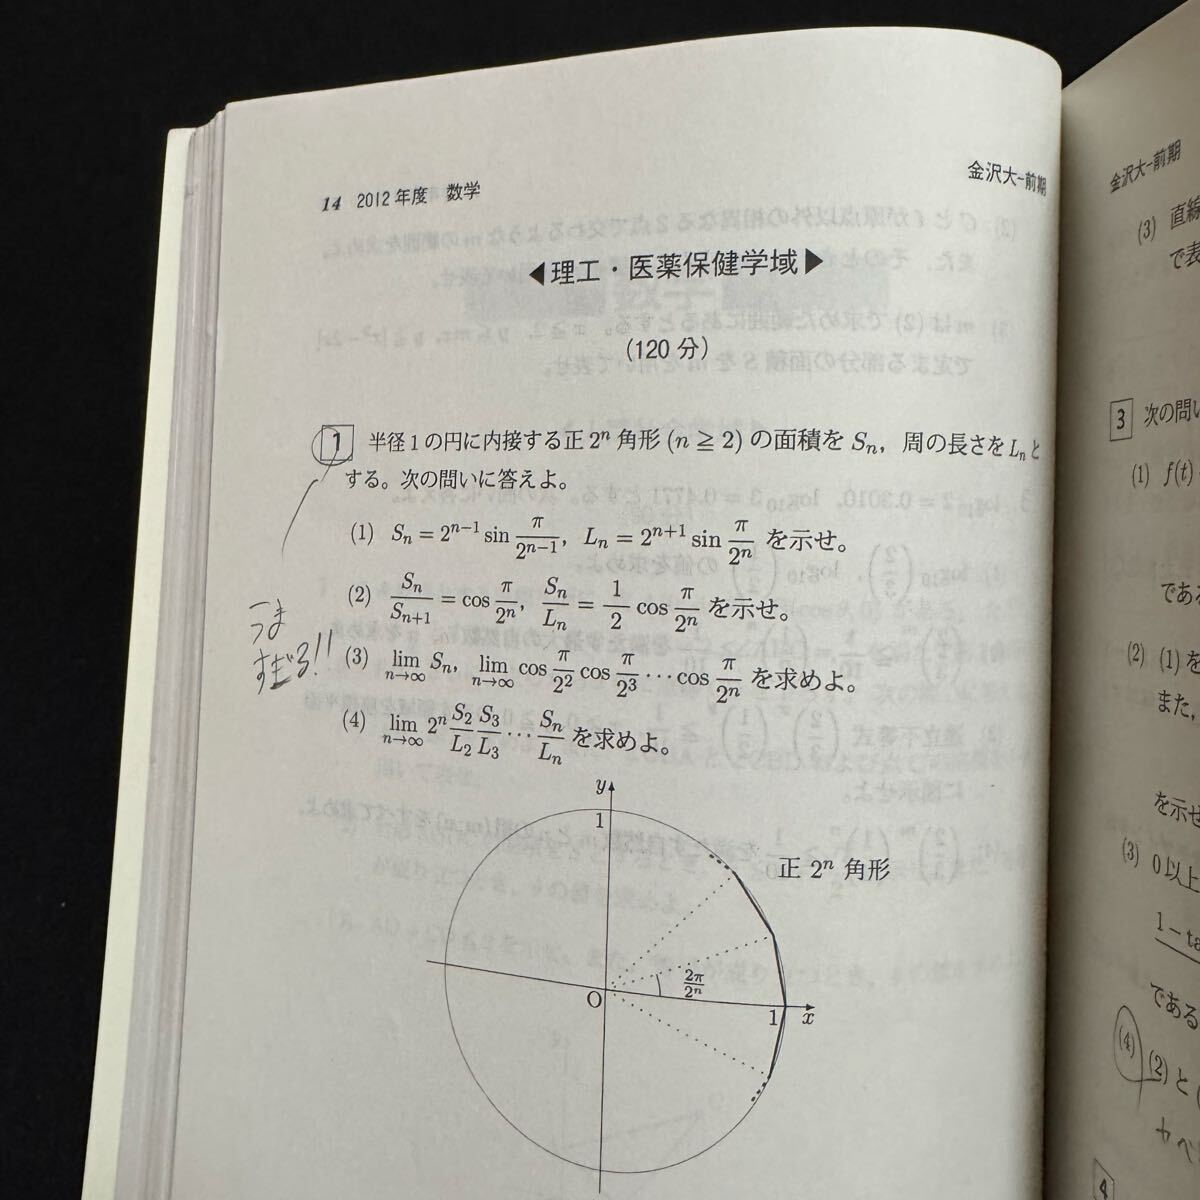 14 2012年度 数学
金沢大-前期
◀理工・医薬保健学域▶
(120分)
1 半径1の円に内接する正 2ⁿ 角形 (n ≧ 2) の面積を Sₙ, 周の長さを Lₙ と
する。次の問いに答えよ。
(1) Sₙ = 2ⁿ⁻¹ sin π/2ⁿ⁻¹, Lₙ = 2ⁿ⁺¹ sin π/2ⁿ を示せ。
(2) Sₙ/Sₙ₊₁ = cos π/2ⁿ, Sₙ/Lₙ = 1/2 cos π/2ⁿ を示せ。
うま
すぎる!!
(3) lim n→∞ Sₙ, lim n→∞ cos π/2² cos π/2³ ⋯ cos π/2ⁿ を求めよ。
(4) lim n→∞ 2ⁿ S₂/L₂ S₃/L₃ ⋯ Sₙ/Lₙ を求めよ。
y
1
正 2ⁿ 角形
2π/2ⁿ
O
1
x
金沢大-前期
(3) 直線
で表
3 次の問い
(1) f(t)
である
(2) (1)を
また,
を示せ
(3) 0以上
1 − ta
である
(4) (2)と
4